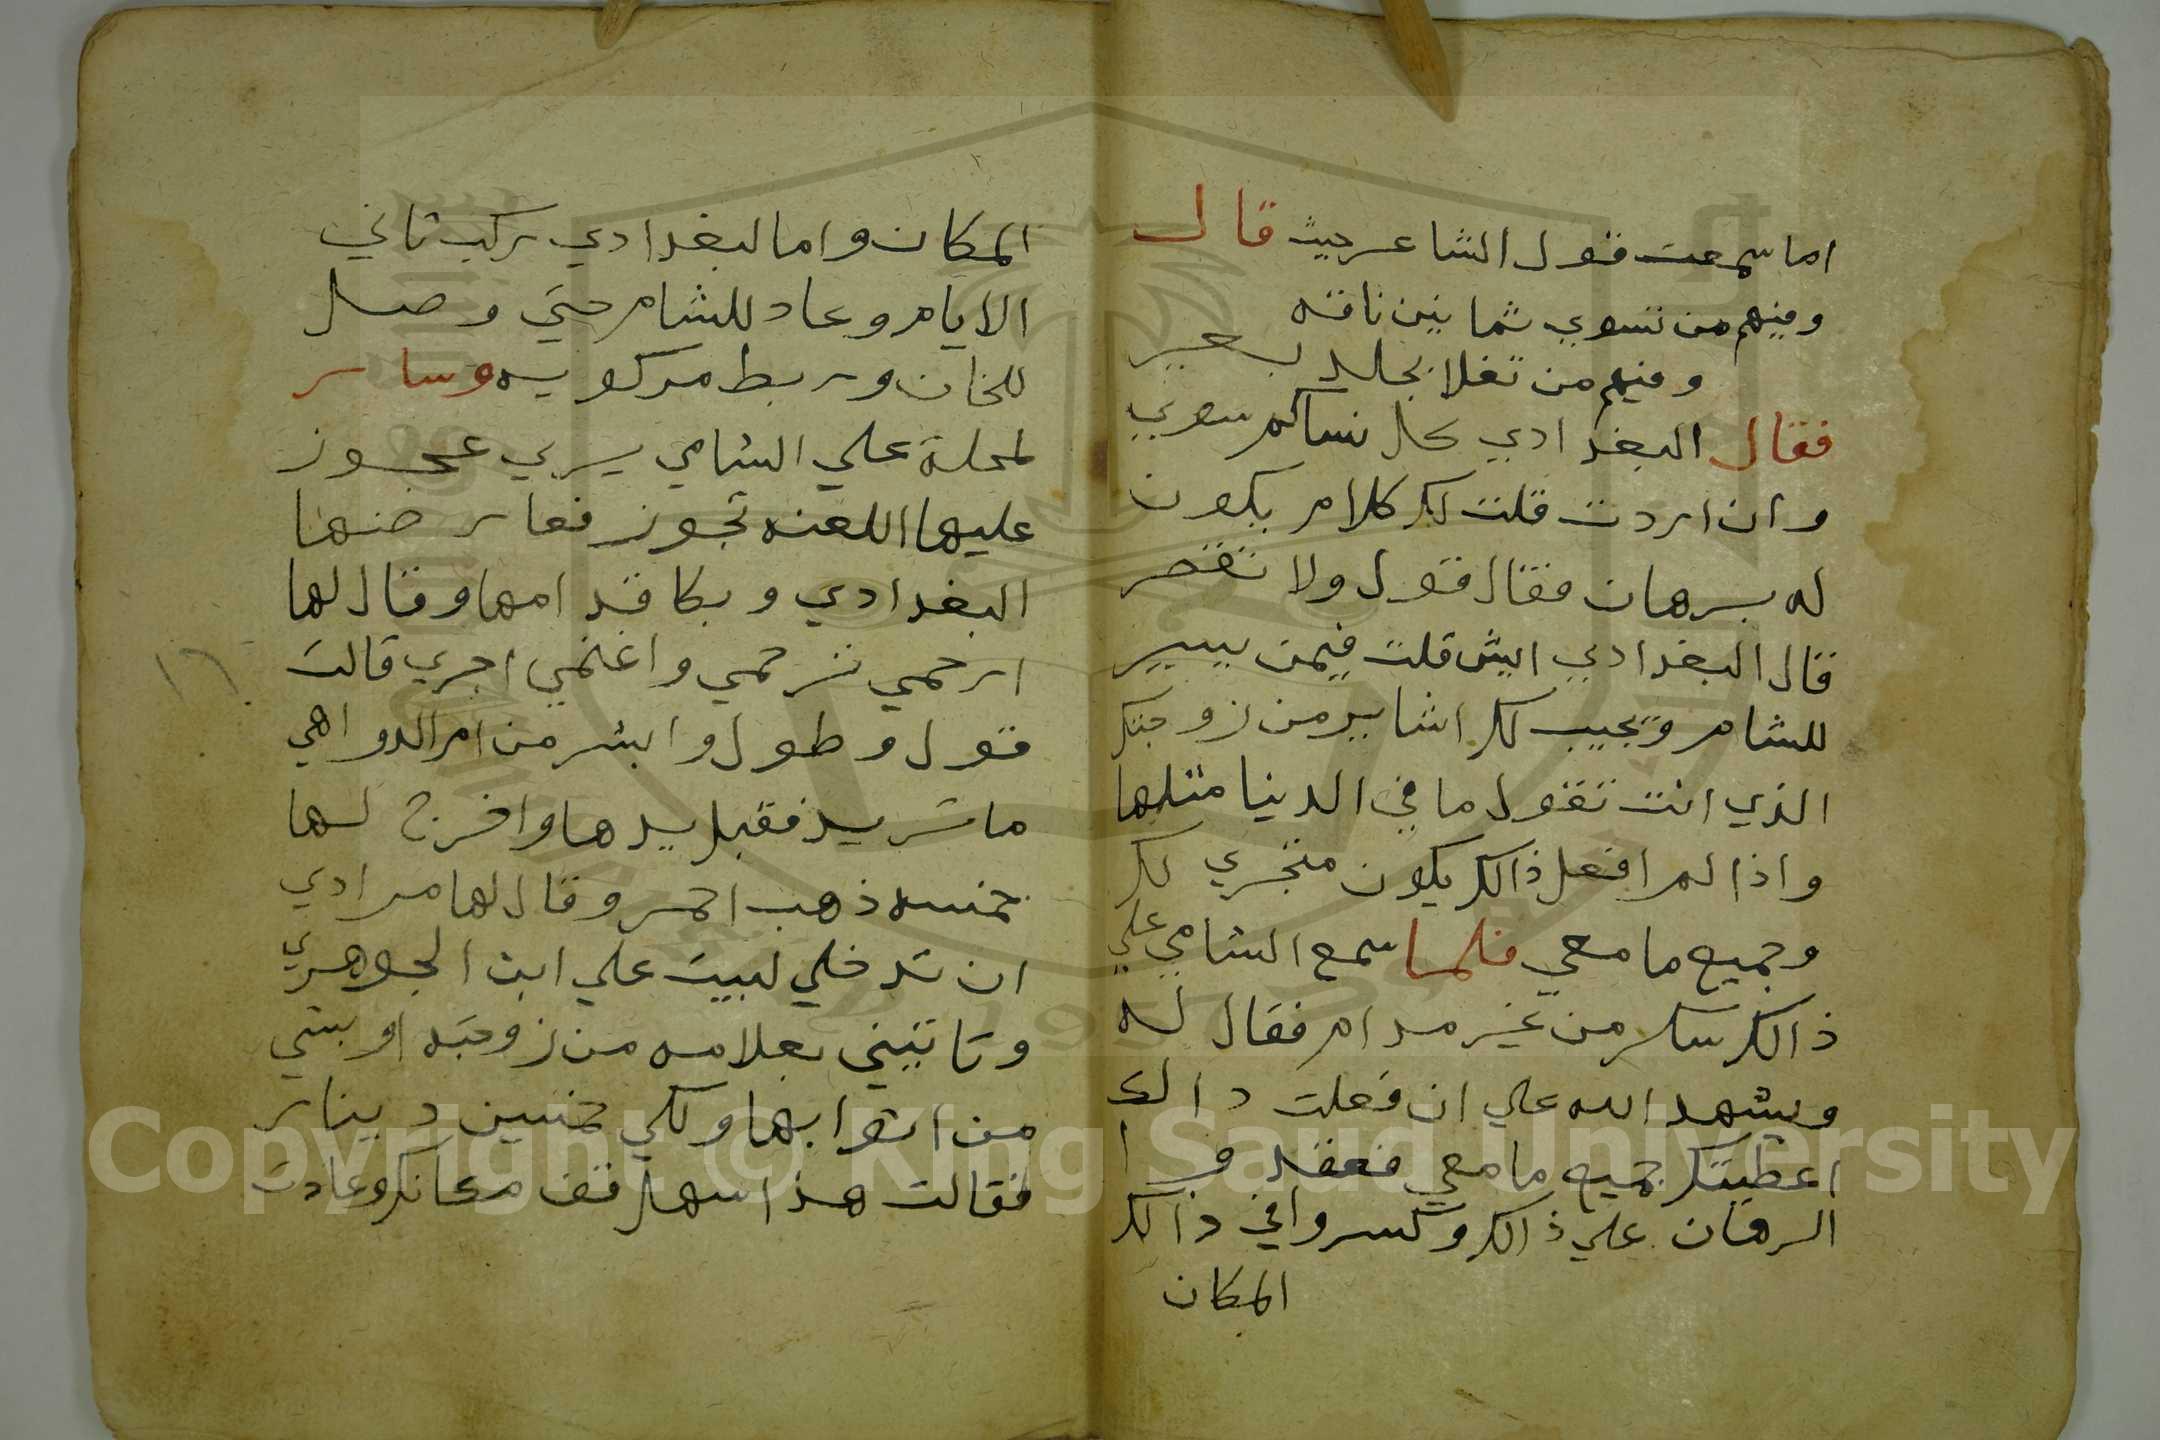 اما سمعت قول الشاعر حيث قال
ومنهم من تسوي ثمانين ناقه
ومنهم من تغلا بجلد بعير
فقال البغدادي كل نساكم سوي
وان اردت قلت لك كلام بكون
له برهان فقال قول ولا تقصر
قال البغدادي ايش قلت فيمن يسير
للشام ويجيب لك اشاير من زوجتك
الذي انت تقول ما في الدنيا مثلها
واذا لم افعل ذالك يكون متجري لك
وجميع ما معي فلما سمع الشامي علي
ذالك سكر من غير مدام فقال له
ويشهد الله علي ان فعلت ذالك
اعطيتك جميع ما معي فعقدوا
الرهان علي ذالك وكسروا في ذالك
المكان
المكان واما البغدادي ركب ثاني
الايام وعاد للشام حتي وصل
للخان وربط مركوبه وسار
لمحلة علي الشامي يري عجوز
عليها اللعنه تجوز فعارضها
البغدادي وبكا قدامها وقال لها
ارحمي ترحمي واغنمي اجري قالت
قول وطول وابشر من ام الدواهي
ما تريد فقبل يدها واخرج لها
خمسه ذهب احمر وقال لها مرادي
ان تدخلي لبيت علي ابن الجوهري
وتاتيني بعلامه من زوجته او بشي
من اثوابها ولكي خمسين دينار
فقالت هذا سهل قف مكانك وعادت
١٦
Copyright © King Saud University